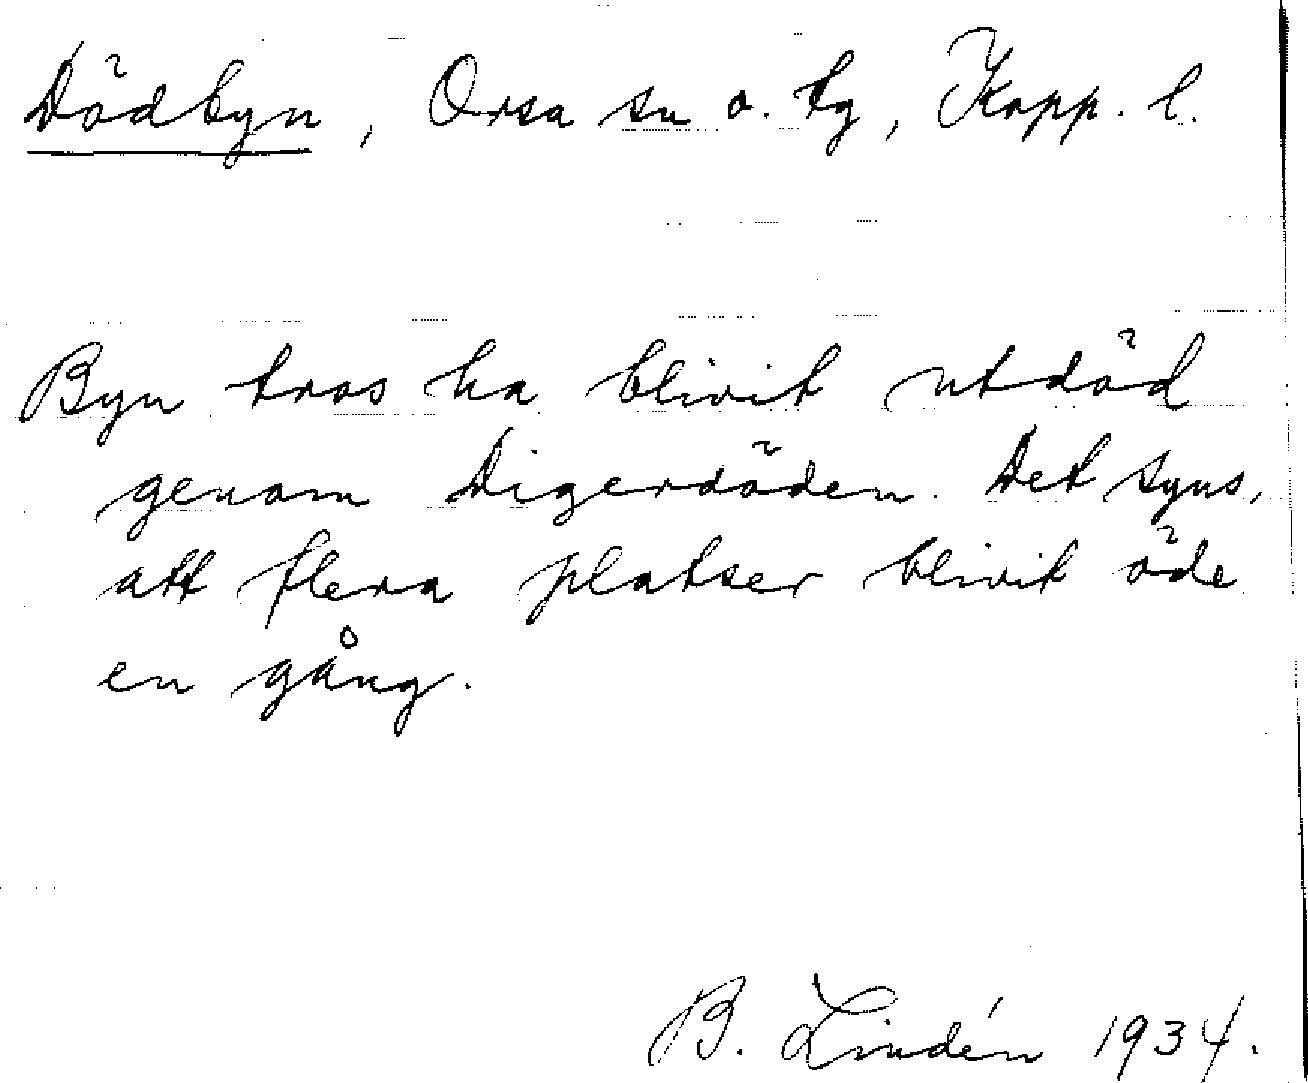 Dödbyn, Orsa sn o. tg, Kopp. l.
Byn tros ha blivit utdöd
genom Digerdöden. Det syns,
att flera platser blivit öde
en gång.
B. Lindén 1934.